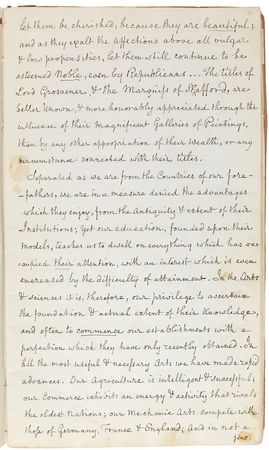 let them be cherished, because they are beautiful;
and as they exalt the affections above all vulgar
& low propensities, let them still continue to be
esteemed Noble, even by Republicans... The titles of
Lord Grosvenor & the Marquis of Stafford, are
better known, & more honorably appreciated through the
influence of their magnificent Galleries of Paintings,
than by any other appropriation of their Wealth, or any
circumstance connected with their titles.
Separated as we are from the Countries of our fore-
fathers, we are in a measure denied the advantages
which they enjoy, from the Antiquity & extent of their
Institutions; yet our education, founded upon their
models, teaches us to dwell on everything which has oc-
cupied their attention, with an interest which is even
encreased by the difficulty of attainment. In the Arts
& sciences it is, therefore, our privilege to ascertain
the foundation & actual extent of their Knowledge,
and often to commence our establishments with a
perfection which they have only recently obtained. In
all the most useful & necessary Arts we have made rapid
advances. Our Agriculture is intelligent & successful;
our Commerce exhibits an energy & activity that rivals
the oldest Nations; our Mechanic Arts compete with
those of Germany, France & England; And in not a
few